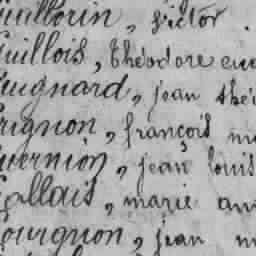 Guillorin, victor.
Guillois, théodore eu
Guignard, jean thé
Grignon, françois m
Guernion, jean louis
Gallais, marie an
Gourgnon, jean m